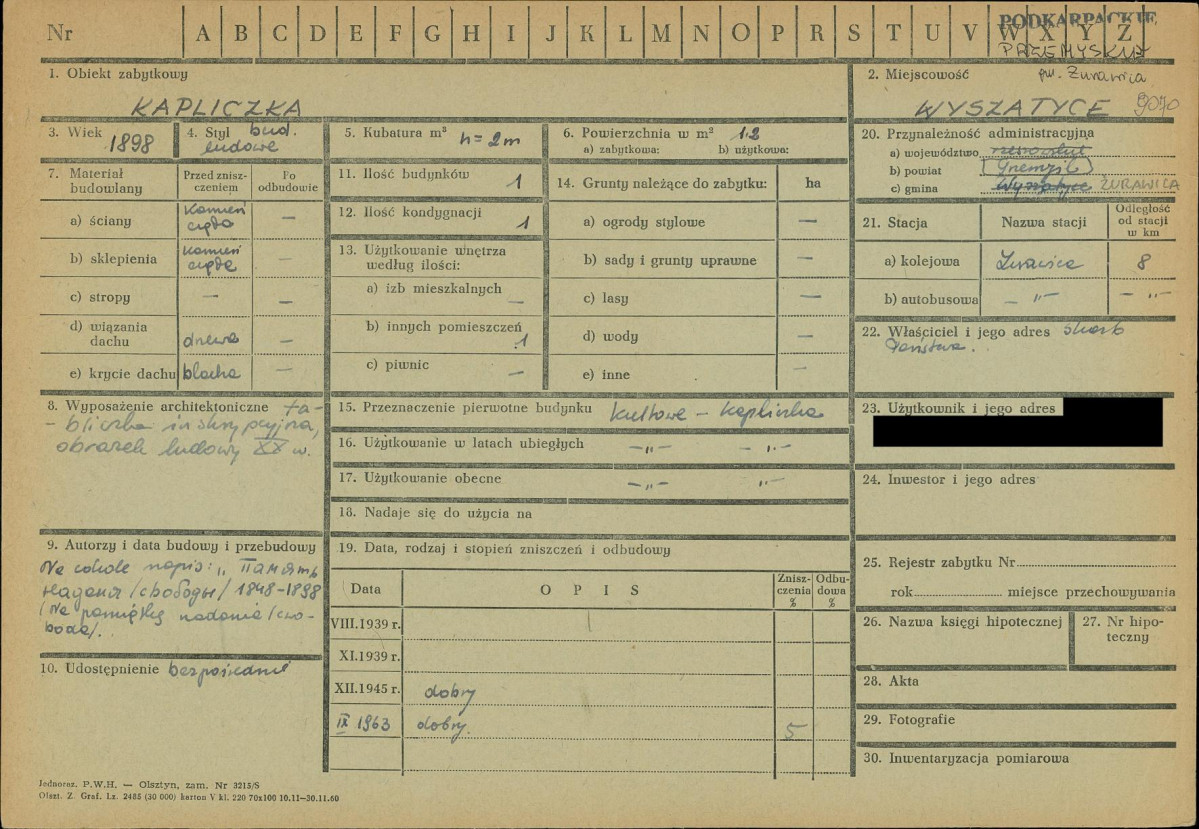 Nr A B C D E F G H I J K L M N O P R S T U V W X Y Z
PODKARPACKIE
PRZEMYSKIE
1. Obiekt zabytkowy
KAPLICZKA
2. Miejscowość gm. Żurawica
WYSZATYCE 9070
3. Wiek
1898
4. Styl bud.
ludowe
5. Kubatura m³
h = 2 m
6. Powierzchnia w m² 1.2
a) zabytkowa: b) użytkowa:
7. Materiał budowlany
Przed zniszczeniem
Po odbudowie
a) ściany kamień —
b) sklepienia kamień —
c) stropy — —
d) wiązania
dachu drewno —
e) krycie dachu blacha —
8. Wyposażenie architektoniczne ta-
- bliczka inskrypcyjna,
obrazek ludowy XX w.
9. Autorzy i data budowy i przebudowy
Na cokole napis: „Память
надания /свободы/ 1848-1898
/Na pamiątkę nadania /swo-
body/.
10. Udostępnienie bezpośrednie
11. Ilość budynków 1
12. Ilość kondygnacji 1
13. Użytkowanie wnętrza
według ilości:
a) izb mieszkalnych —
b) innych pomieszczeń 1
c) piwnic —
14. Grunty należące do zabytku: ha
a) ogrody stylowe —
b) sady i grunty uprawne —
c) lasy —
d) wody —
e) inne —
15. Przeznaczenie pierwotne budynku kultowe - kapliczka
16. Użytkowanie w latach ubiegłych -„- -„-
17. Użytkowanie obecne -„- -„-
18. Nadaje się do użycia na
19. Data, rodzaj i stopień zniszczeń i odbudowy
Data O P I S Zniszczenia % Odbudowa %
VIII.1939 r.
XI.1939 r.
XII.1945 r. dobry
IX 1963 dobry. 5
20. Przynależność administracyjna
a) województwo rzeszowskie
b) powiat Przemyśl
c) gmina Wyszatyce ŻURAWICA
21. Stacja Nazwa stacji Odległość od stacji w km
a) kolejowa Żurawica 8
b) autobusowa -„- -„-
22. Właściciel i jego adres Skarb
Państwa.
23. Użytkownik i jego adres
24. Inwestor i jego adres
25. Rejestr zabytku Nr
rok miejsce przechowywania
26. Nazwa księgi hipotecznej
27. Nr hipo-
teczny
28. Akta
29. Fotografie
30. Inwentaryzacja pomiarowa
Jednoraz. P.W.H. — Olsztyn, zam. Nr 3215/S
Olszt. Z. Graf. Lz. 2485 (30 000) karton V kl. 220 70x100 10.11—30.11.60